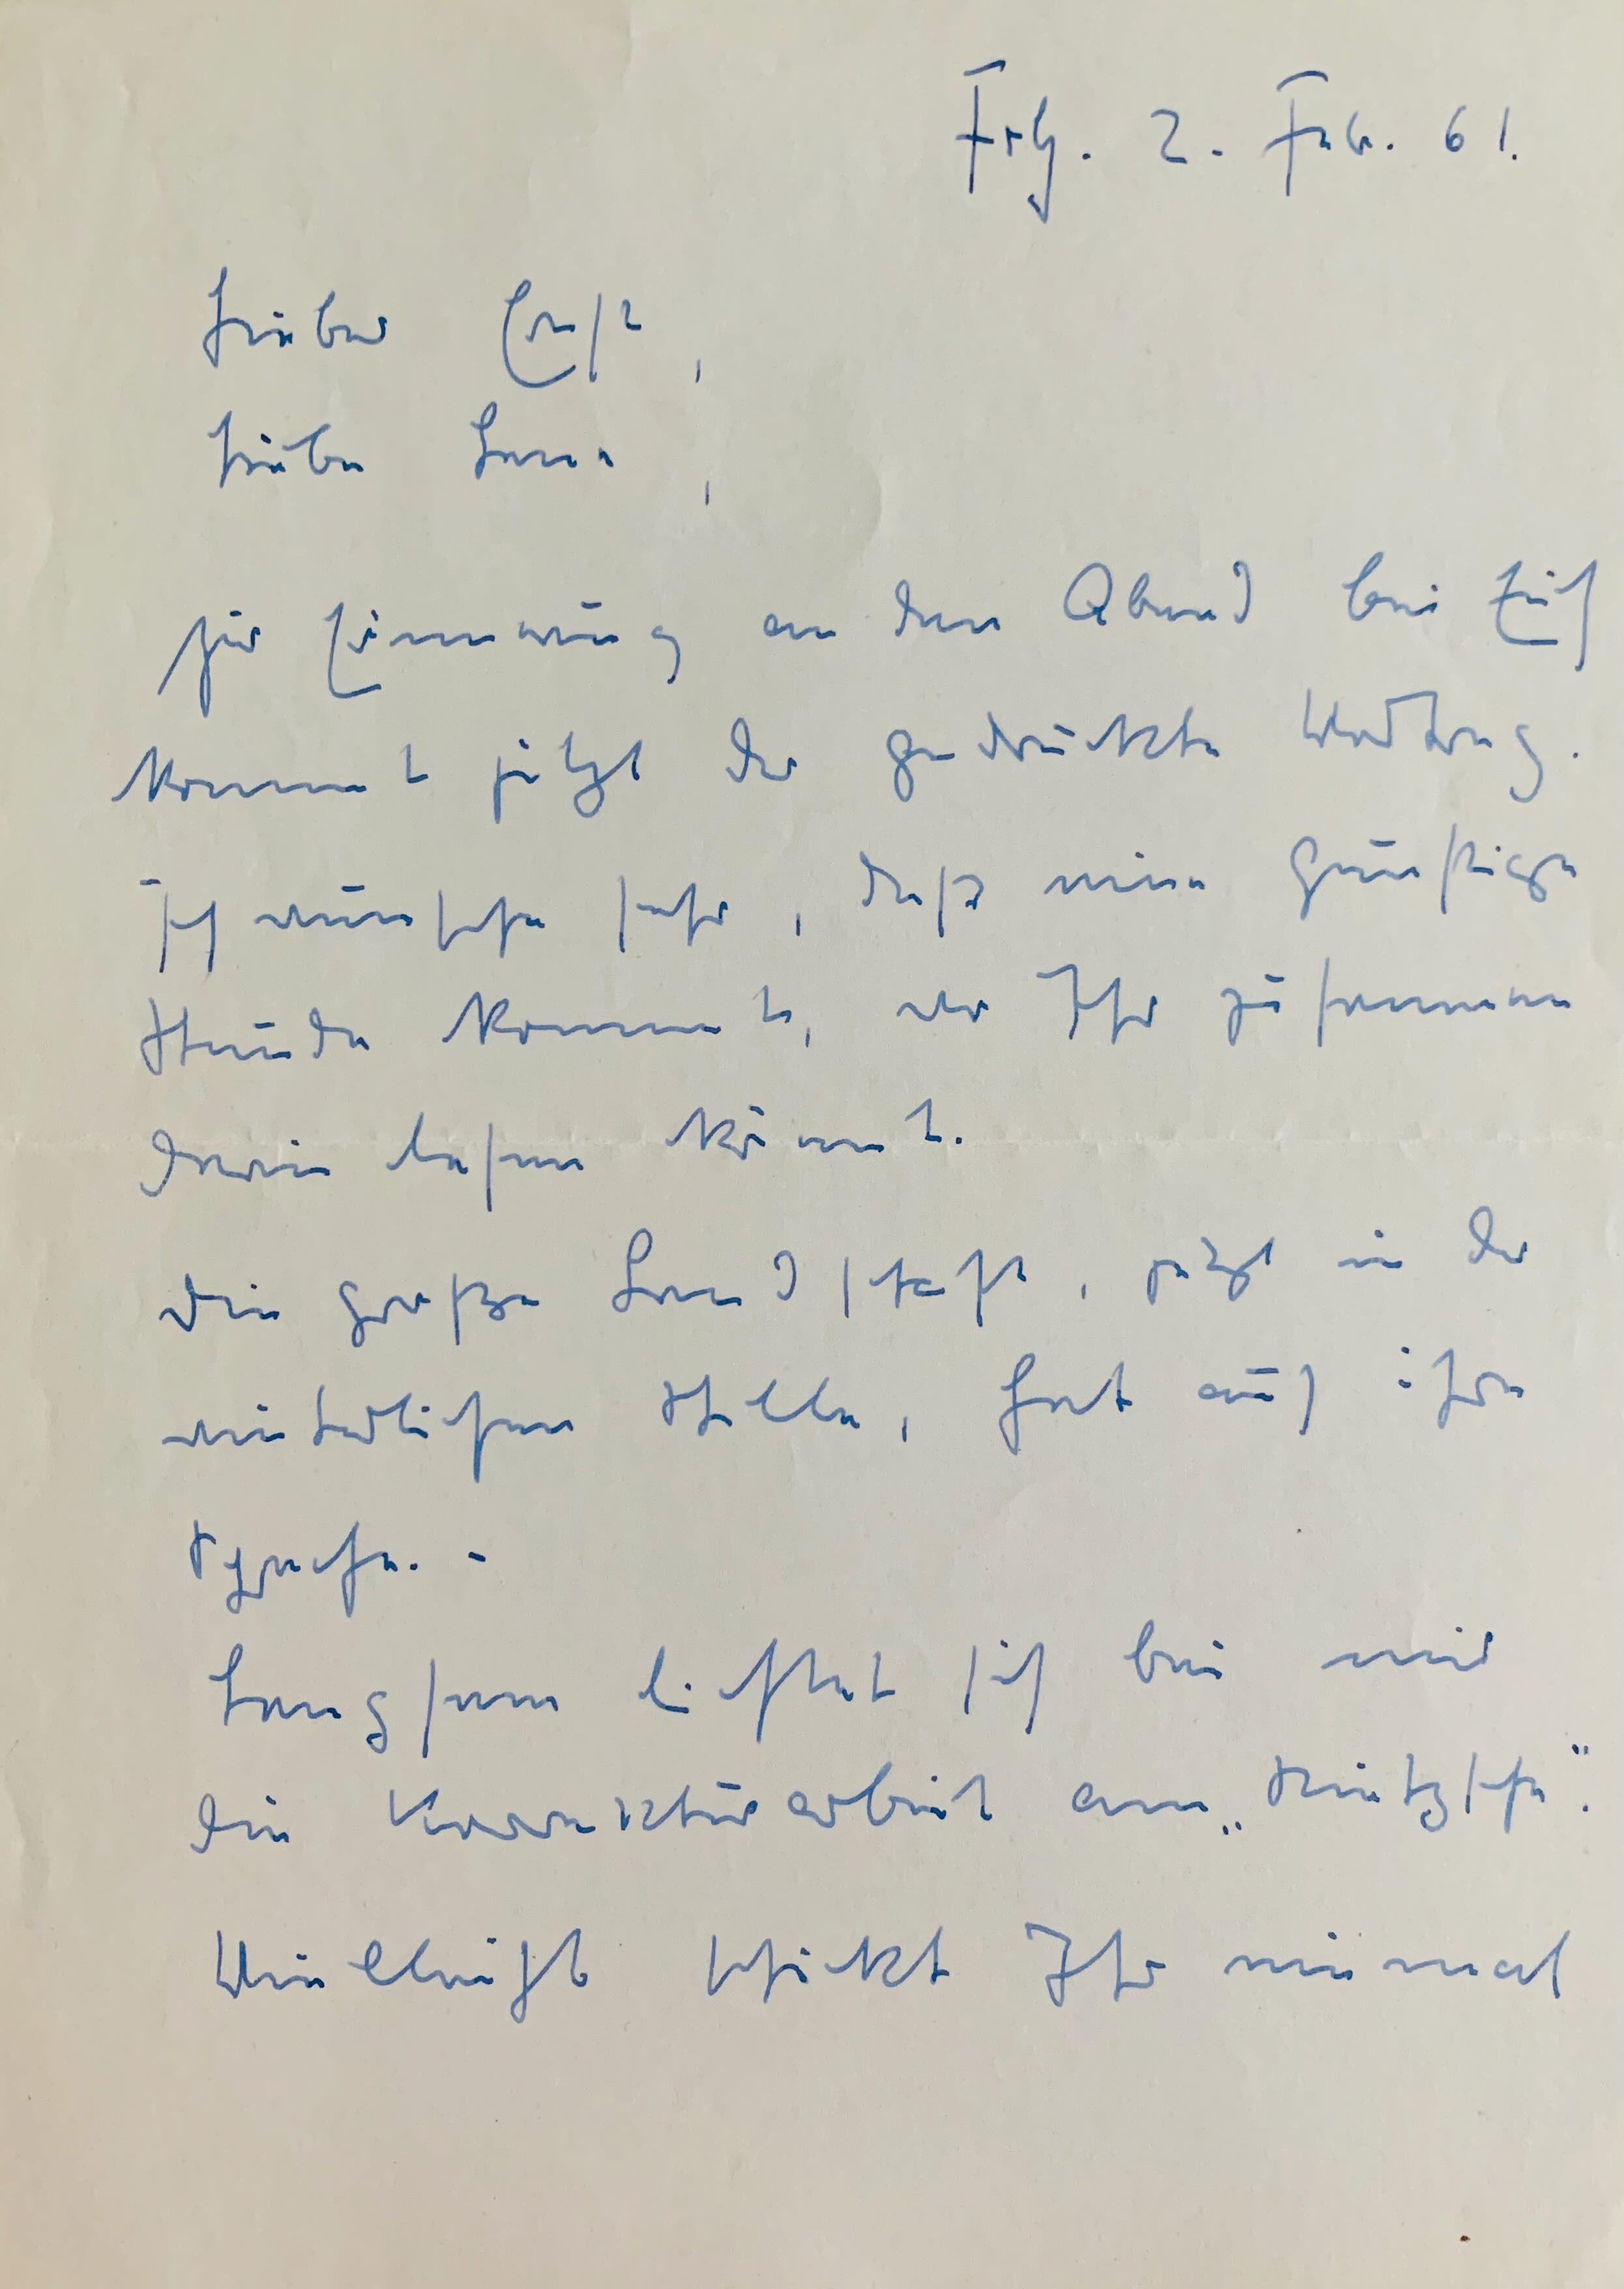 Frbg. 2. Feb. 61.
Lieber Ernst,
Liebe
zur Erinnerung an den Abend bei Euch
kommt jetzt der gedruckte Vortrag.
Ich wünsche sehr, daß eine günstige
Stunde kommt, wo Ihr zusammen
darin lesen könnt.
Die große Landschaft, jetzt in der
winterlichen Stille, hat auch ihre
Sprache. -
Langsam lichtet sich bei mir
die Korrekturarbeit am „Nietzsche“.
Vielleicht schickt Ihr einmal